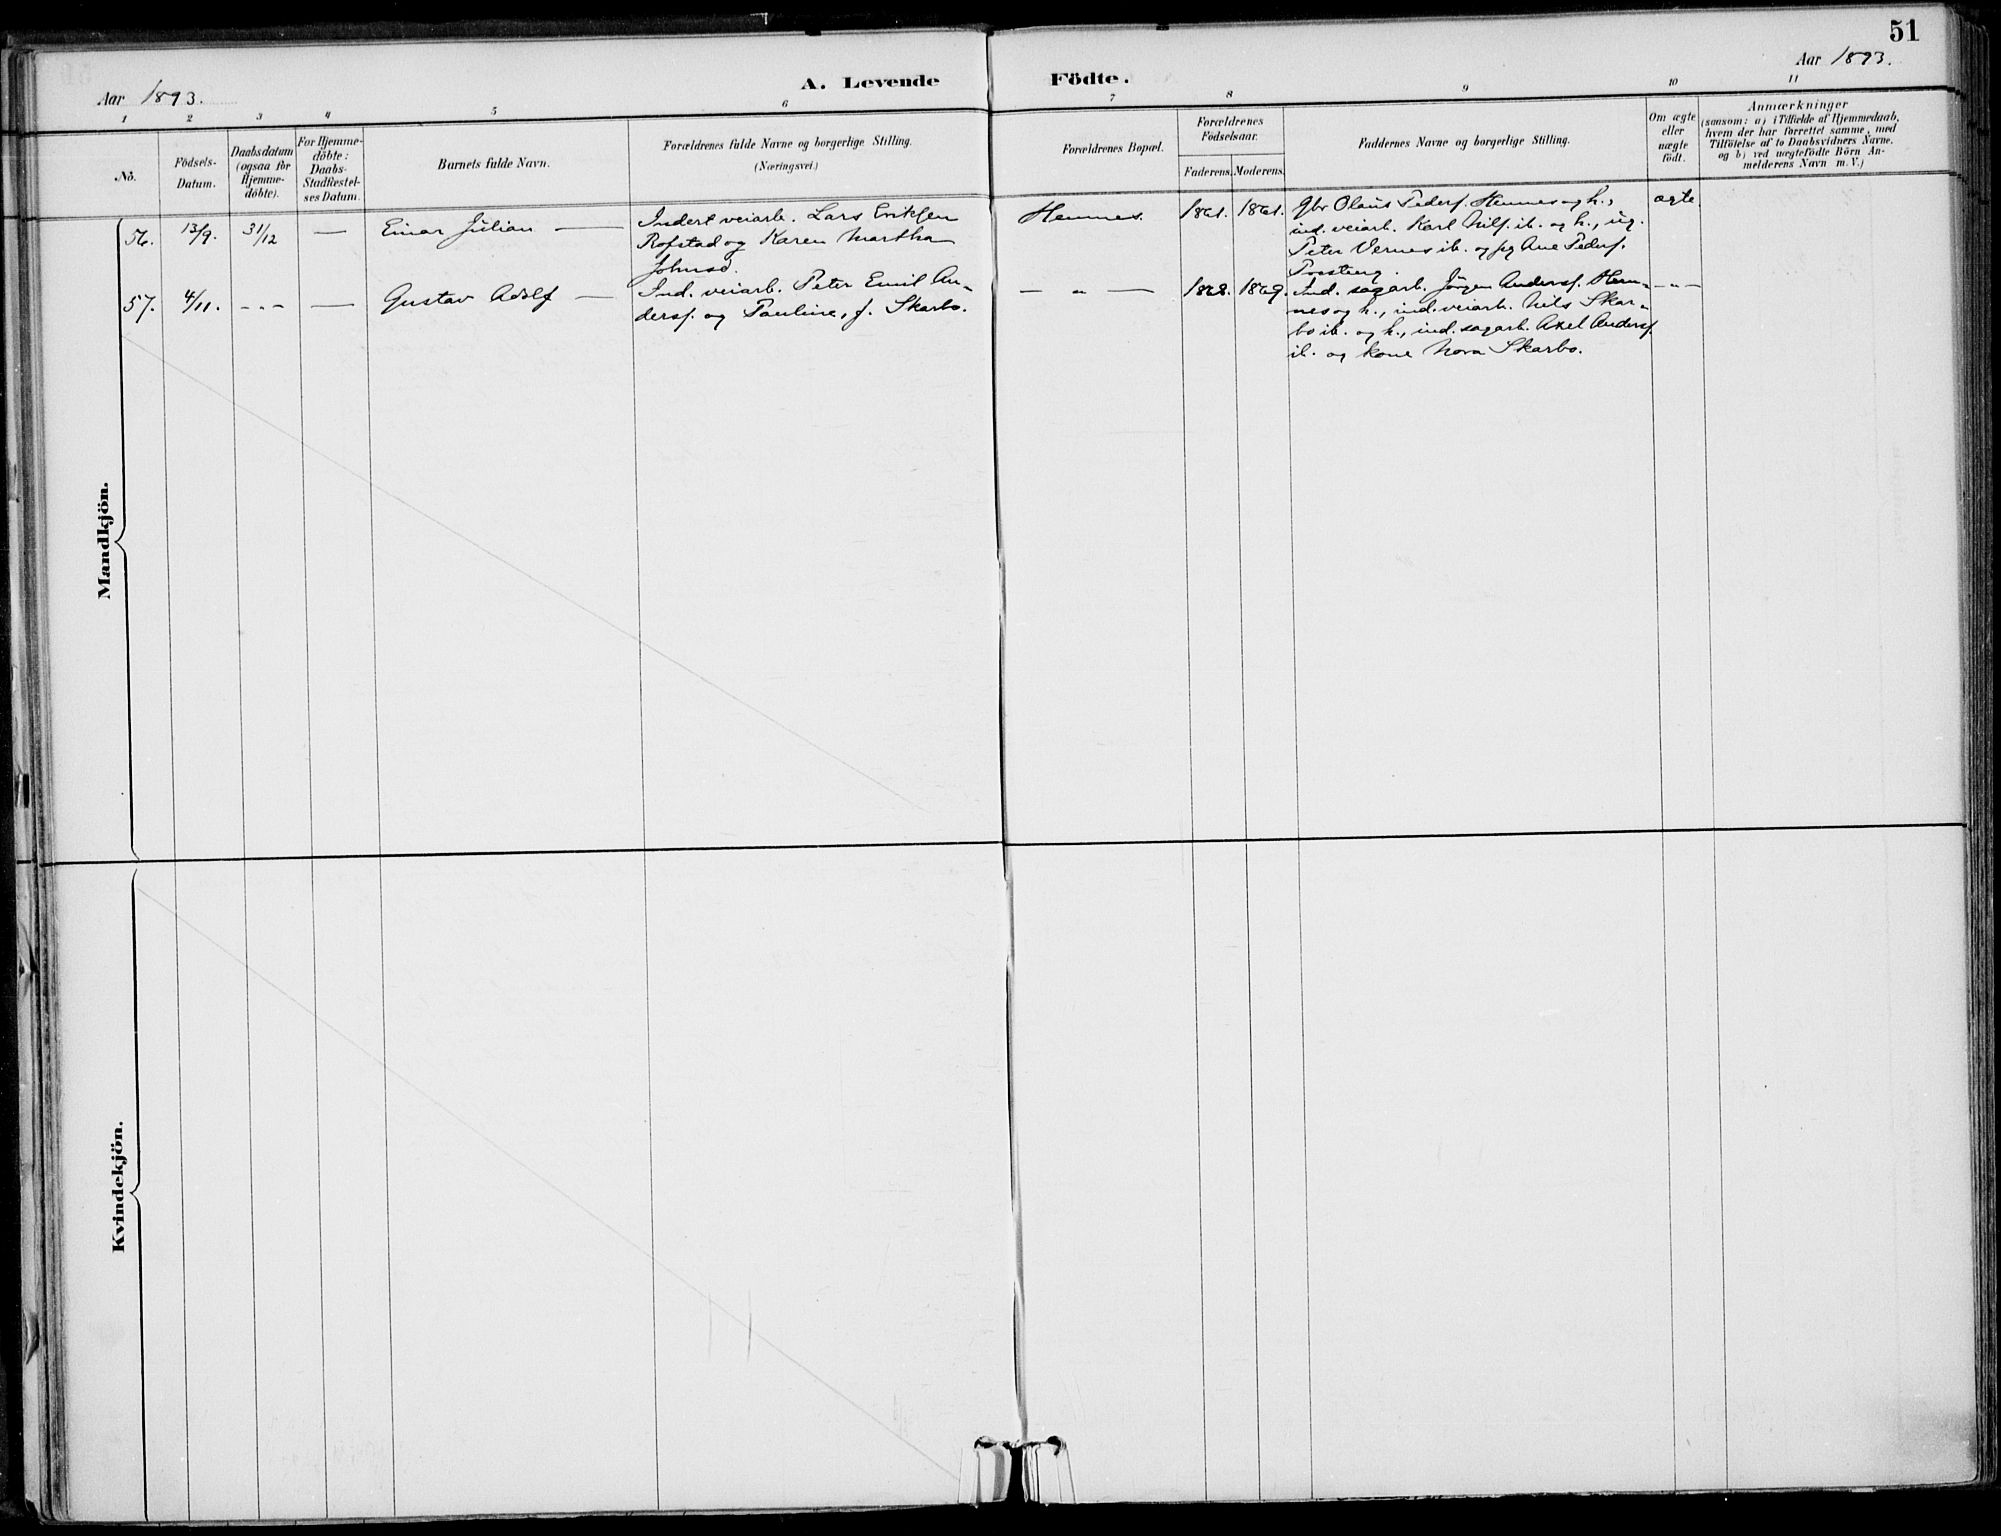 51
Aar 1893.
A. Levende Födte.
Aar 1893.
1 2 3 4 5 6 7 8 9 10 11
No.
Födsels-
Datum.
Daabsdatum
(ogsaa for
Hjemme-
döbte).
For Hjemme-
döbte:
Daabs-
Stadfæstel-
ses Datum.
Barnets fulde Navn.
Forældrenes fulde Navne og borgerlige Stilling.
(Næringsvei.)
Forældrenes Bopæl.
Forældrenes
Födselsaar.
Faderens. Moderens.
Faddernes Navne og borgerlige Stilling.
Om ægte
eller
uægte
födt.
Anmærkninger
(saasom: a) i Tilfælde af Hjemmedaab,
hvem der har forrettet samme, med
Tilföielse af to Daabsvidners Navne,
og b) ved uægtefödte Börn An-
melderens Navn m. V.)
Mandkjön.
56. 13/9. 31/12 — Einar Julian —
Indert veiarb. Lars Eriksen
Rofstad og Karen Martha
Johnsd.
Hemnes. 1861. 1861.
Gbr Olaus Pedersf. Hemnes og h.,
ind. veiarb. Karl Nilsf. ib. og h., ug.
Peter Vernes ib. og pg Ane Pedersf.
ægte
57. 4/11. - " - — Gustav Adolf —
Ind. veiarb. Peter Emil An-
dersf. og Pauline, f. Skarbo.
— " — 1868. 1869.
Ind. sagarb. Jørgen Andersf. Hem-
nes og h., ind. veiarb. Nils Skar-
bo ib. og h., ind. sagarb. Axel Andersf.
ib. og kone Nora Skarbo.
- " -
Kvindekjön.